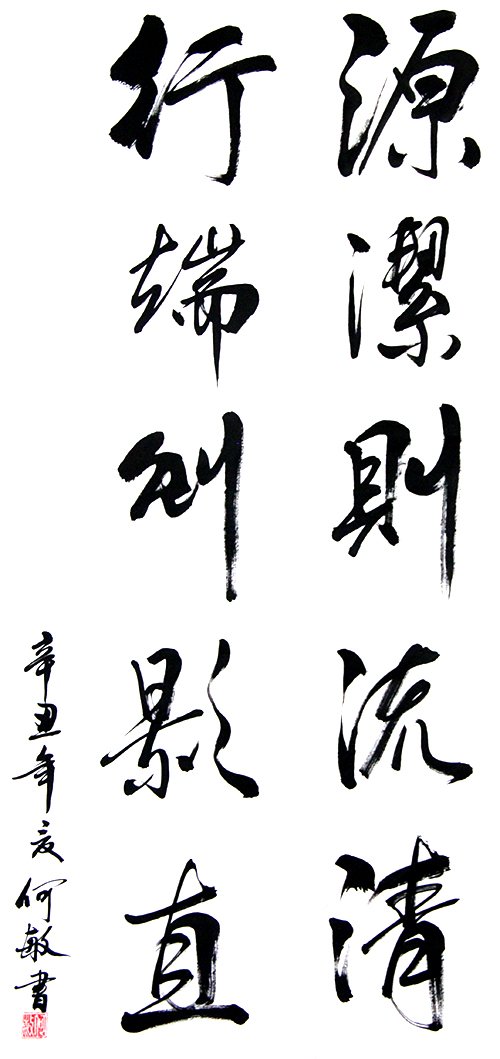 源潔則流清
行端則影直
辛丑年夏何敏書